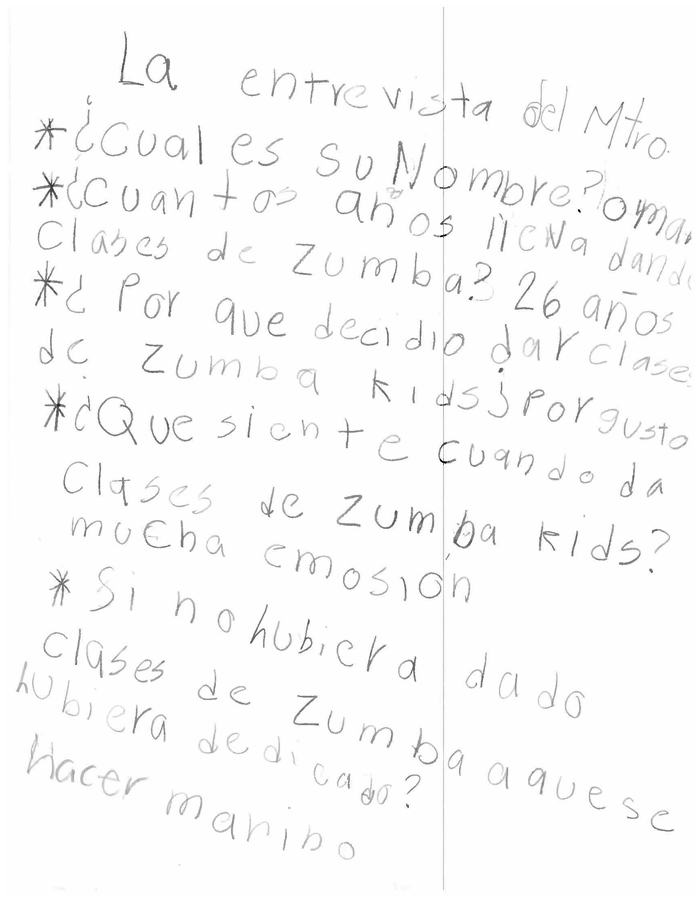 La entrevista del Mtro.
*¿Cual es su Nombre? omar
*¿Cuantos años lleva dando
Clases de Zumba? 26 años
*¿Por que decidio dar clases
de zumba kids? Por gusto
*¿Que siente cuando da
Clases de zumba kids?
mucha emosión
*Si no hubiera dado
clases de zumba a que se
hubiera dedicado?
Hacer marino